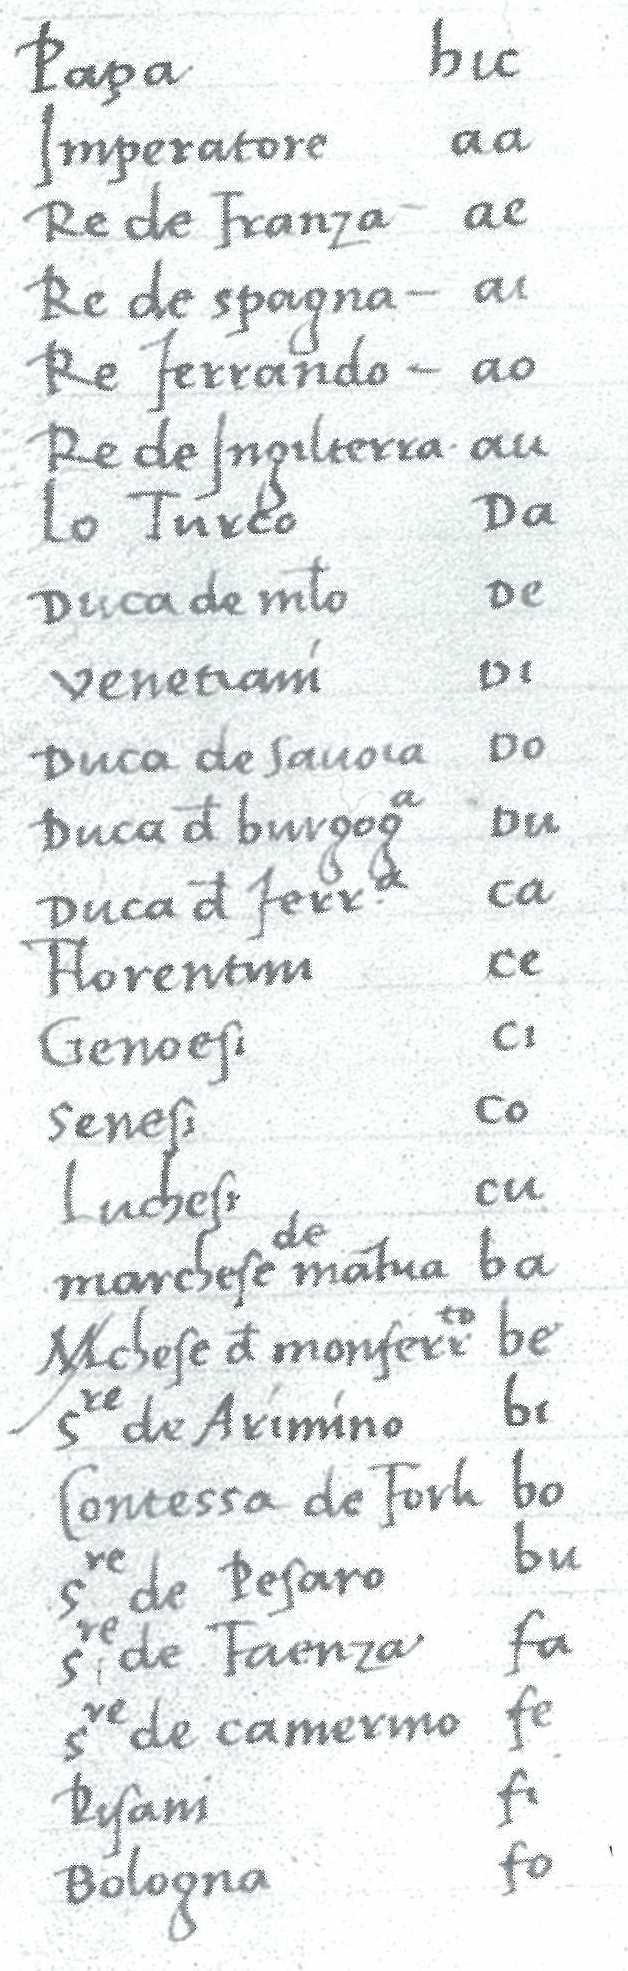 Papa bic
Imperatore aa
Re de Franza - ae
Re de spagna - ai
Re ferrando - ao
Re de Ingilterra . au
Lo Turco Da
Duca de mlo De
Venetiani Di
Duca de Sauoia Do
Duca d burgogª Du
Duca d ferrª ca
Florentini ce
Genoesi ci
Senesi co
Luchesi cu
marchese de mātua ba
Mchese d monferrto be
Sre de Arimino bi
Contessa de Forli bo
Sre de Pesaro bu
Sre de Faenza fa
Sre de camerino fe
Pisani fi
Bologna fo